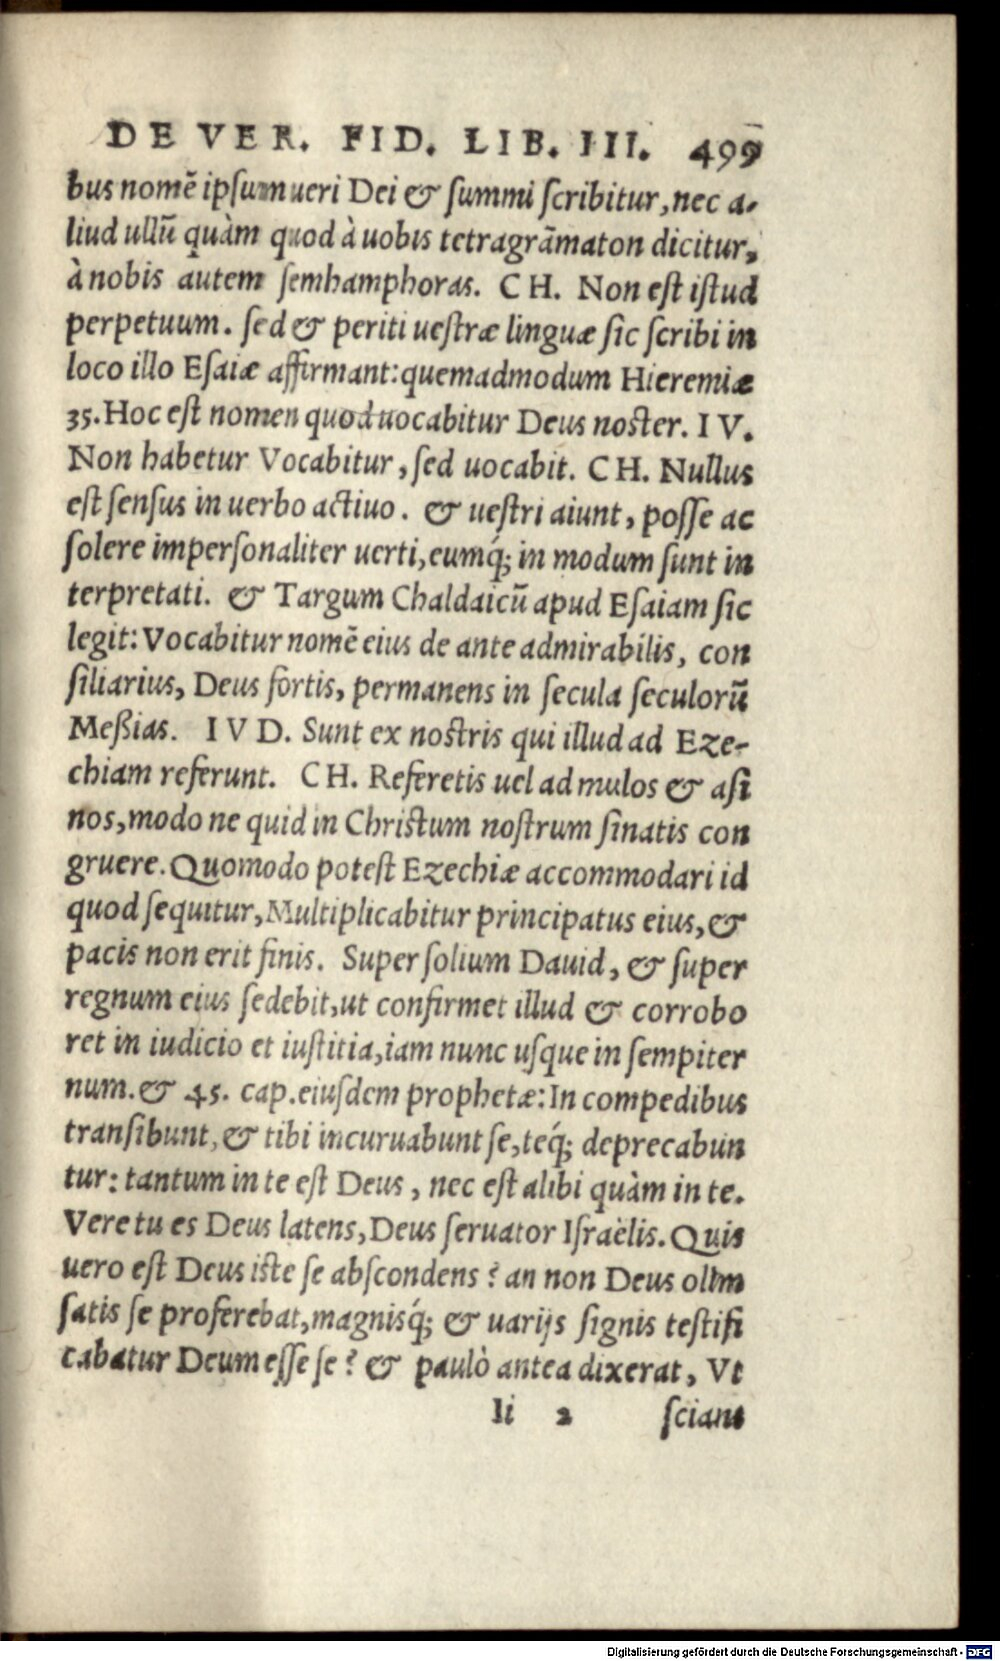 DE VER. FID. LIB. III. 499
bus nomē ipsum ueri Dei & summi scribitur, nec a-
liud ullū quàm quod à uobis tetragrāmaton dicitur,
à nobis autem semhamphoras. CH. Non est istud
perpetuum. sed & periti uestræ linguæ sic scribi in
loco illo Esaiæ affirmant: quemadmodum Hieremiæ
35. Hoc est nomen quod uocabitur Deus noster. IV.
Non habetur Vocabitur, sed uocabit. CH. Nullus
est sensus in uerbo actiuo. & uestri aiunt, posse ac
solere impersonaliter uerti, eumq́; in modum sunt in
terpretati. & Targum Chaldaicū apud Esaiam sic
legit: Vocabitur nomē eius de ante admirabilis, con
siliarius, Deus fortis, permanens in secula seculorū
Meßias. IVD. Sunt ex nostris qui illud ad Eze-
chiam referunt. CH. Referetis uel ad mulos & asi
nos, modo ne quid in Christum nostrum sinatis con
gruere. Quomodo potest Ezechiæ accommodari id
quod sequitur, Multiplicabitur principatus eius, &
pacis non erit finis. Super solium Dauid, & super
regnum eius sedebit, ut confirmet illud & corrobo
ret in iudicio et iustitia, iam nunc usque in sempiter
num. & 45. cap. eiusdem prophetæ: In compedibus
transibunt, & tibi incuruabunt se, teq́; deprecabun
tur: tantum in te est Deus, nec est alibi quàm in te.
Vere tu es Deus latens, Deus seruator Israëlis. Quis
uero est Deus iste se abscondens? an non Deus olim
satis se proferebat, magnisq́; & uarijs signis testifi
cabatur Deum esse se? & paulò antea dixerat, Vt
Ii 2 sciant
Digitalisierung gefördert durch die Deutsche Forschungsgemeinschaft - DFG